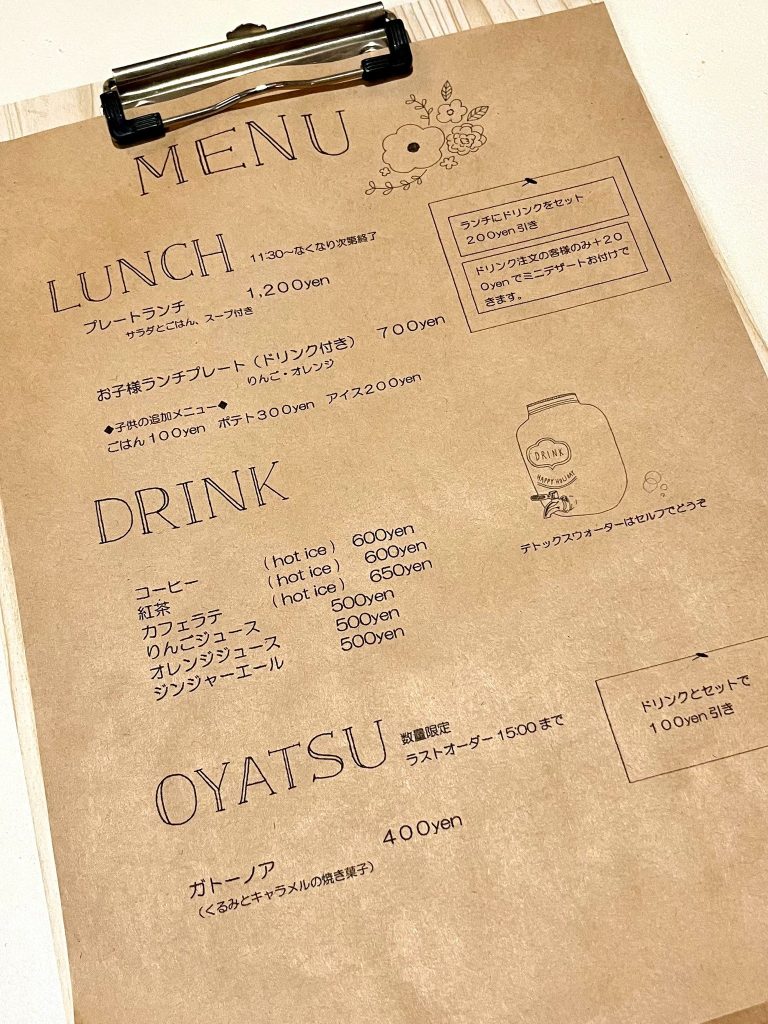 MENU
LUNCH 11:30〜なくなり次第終了
プレートランチ 1,200yen
サラダとごはん、スープ付き
お子様ランチプレート（ドリンク付き） 700yen
りんご・オレンジ
◆子供の追加メニュー◆
ごはん100yen ポテト300yen アイス200yen
ランチにドリンクをセット
200yen引き
ドリンク注文の客様のみ＋20
0yenでミニデザートお付けで
きます。
DRINK
コーヒー (hot ice) 600yen
紅茶 (hot ice) 600yen
カフェラテ (hot ice) 650yen
りんごジュース 500yen
オレンジジュース 500yen
ジンジャーエール 500yen
DRINK
HAPPY HOLIDAY
デトックスウォーターはセルフでどうぞ
OYATSU 数量限定
ラストオーダー15:00まで
ドリンクとセットで
100yen引き
ガトーノア 400yen
（くるみとキャラメルの焼き菓子）